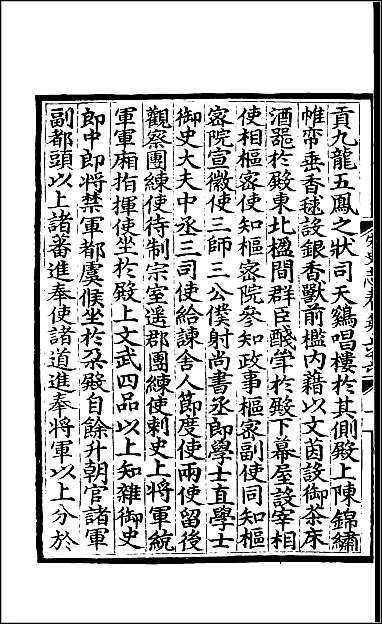 貢九龍五鳳之狀司天鷄唱樓於其側殿上陳錦繡
帷帟垂香毬設銀香獸前檻內藉以文茵設御茶床
酒器於殿東北楹間群臣醆斝於殿下幕屋設宰相
使相樞密使知樞密院參知政事樞密副使同知樞
密院宣徽使三師三公僕射尚書丞郎學士直學士
御史大夫中丞三司使給諫舍人節度使兩使留後
觀察團練使待制宗室遥郡團練使剌史上將軍統
軍軍廂指揮使坐於殿上文武四品以上知雜御史
郎中郎將禁軍都虞候坐於朶殿自餘升朝官諸軍
副都頭以上諸蕃進奉使諸道進奉將軍以上分於